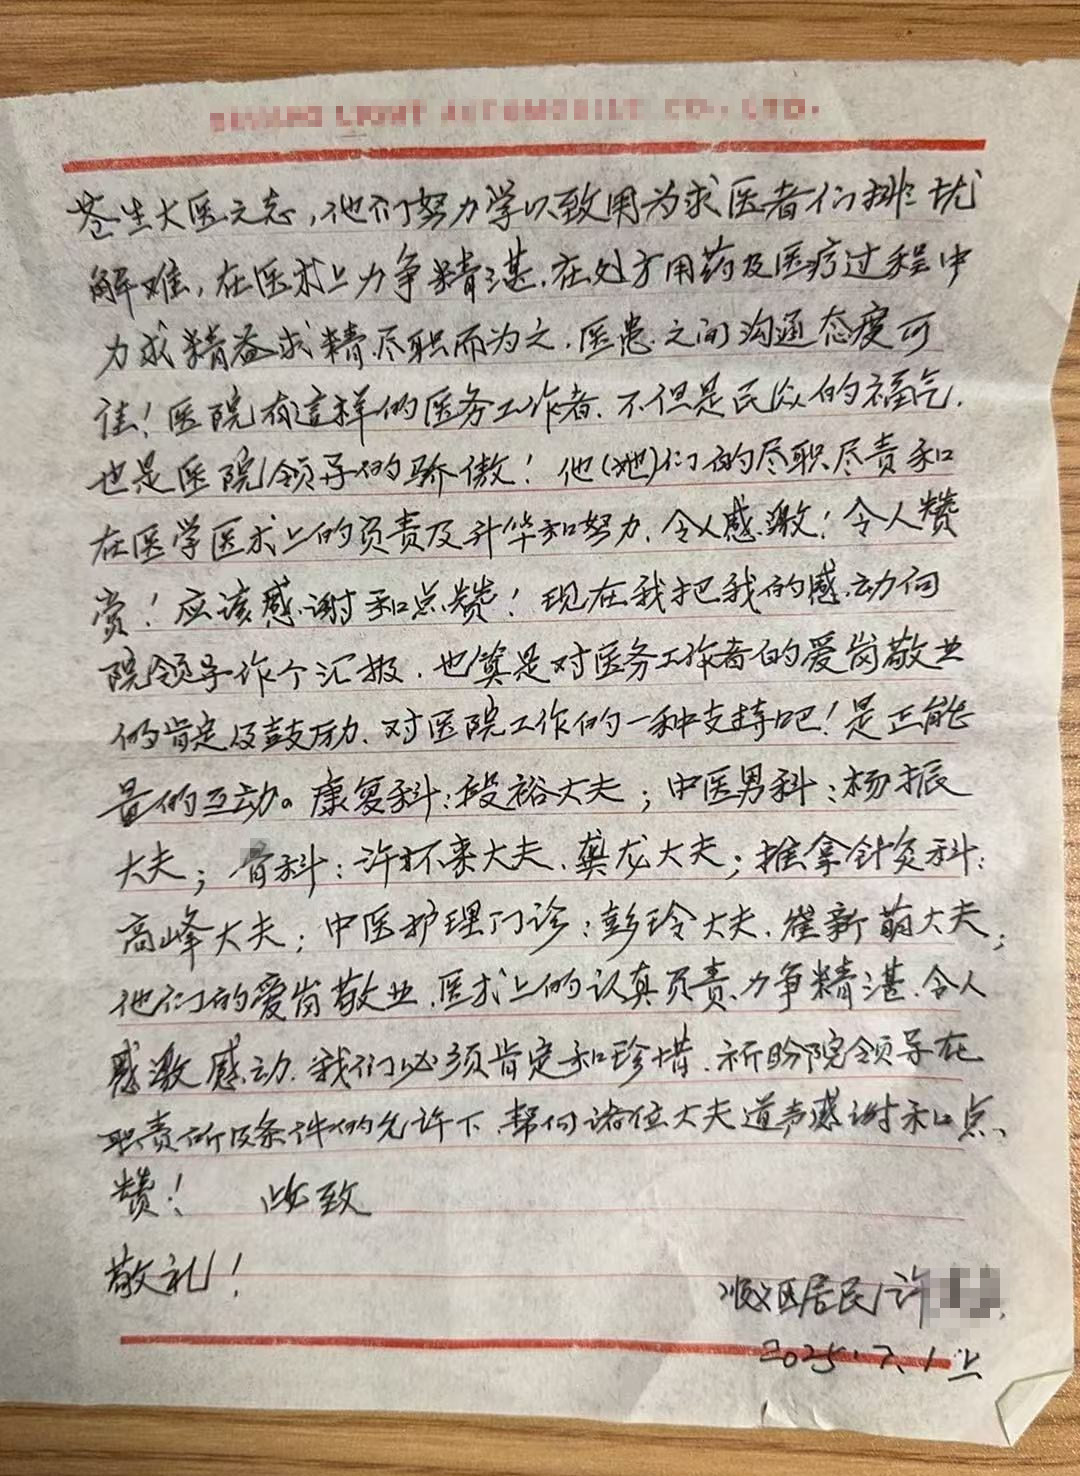 苍生大医之志，他们努力学以致用为求医者们排忧
解难，在医术上力争精湛.在处方用药及医疗过程中
力求精益求精.尽职而为之.医患之间沟通态度可
佳！医院有这样的医务工作者.不但是民众的福气.
也是医院领导的骄傲！他(她)们的尽职尽责和
在医学医术上的负责及升华和努力.令人感激！令人赞
赏！应该感谢和点赞！现在我把我的感动向
院领导作个汇报.也算是对医务工作者的爱岗敬业
的肯定及鼓励.对医院工作的一种支持吧！是正能
量的互动。康复科：段裕大夫；中医男科：杨振
大夫；骨科：许怀来大夫、龚龙大夫；推拿针灸科：
高峰大夫；中医护理门诊：彭玲大夫、崔新萌大夫；
他们的爱岗敬业.医术上的认真负责、力争精湛.令人
感激感动.我们必须肯定和珍惜.祈盼院领导在
职责所及条件的允许下.帮向诸位大夫道声感谢和点
赞！ 此致
敬礼！
顺义区居民许
2025.7.1上